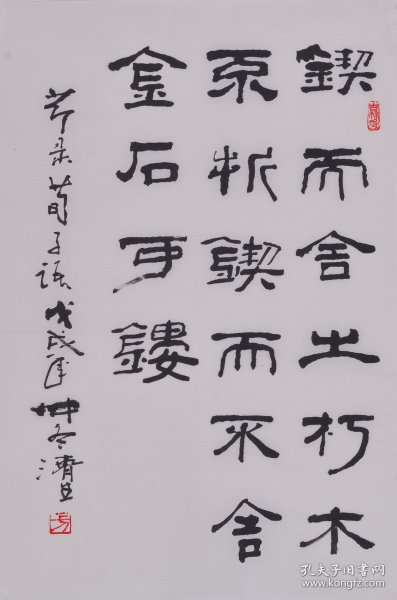 鍥而舍之朽木
不折鍥而不舍
金石可鏤
节录荀子语戊戌年
孔夫子旧书网
www.kongfz.com